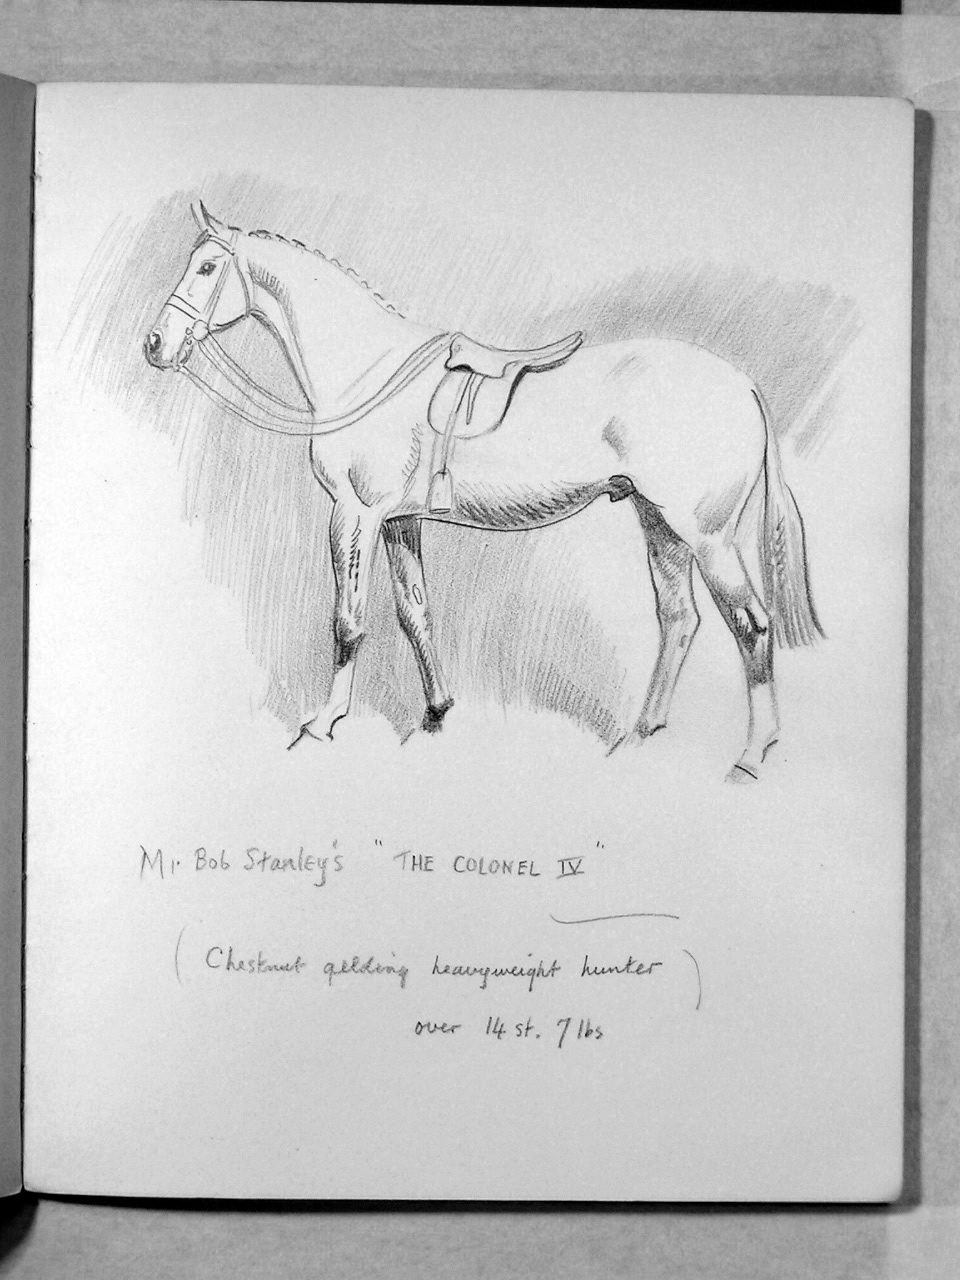 Mr. Bob Stanley's "THE COLONEL IV"
(Chestnut gelding heavyweight hunter)
over 14 st. 7 lbs